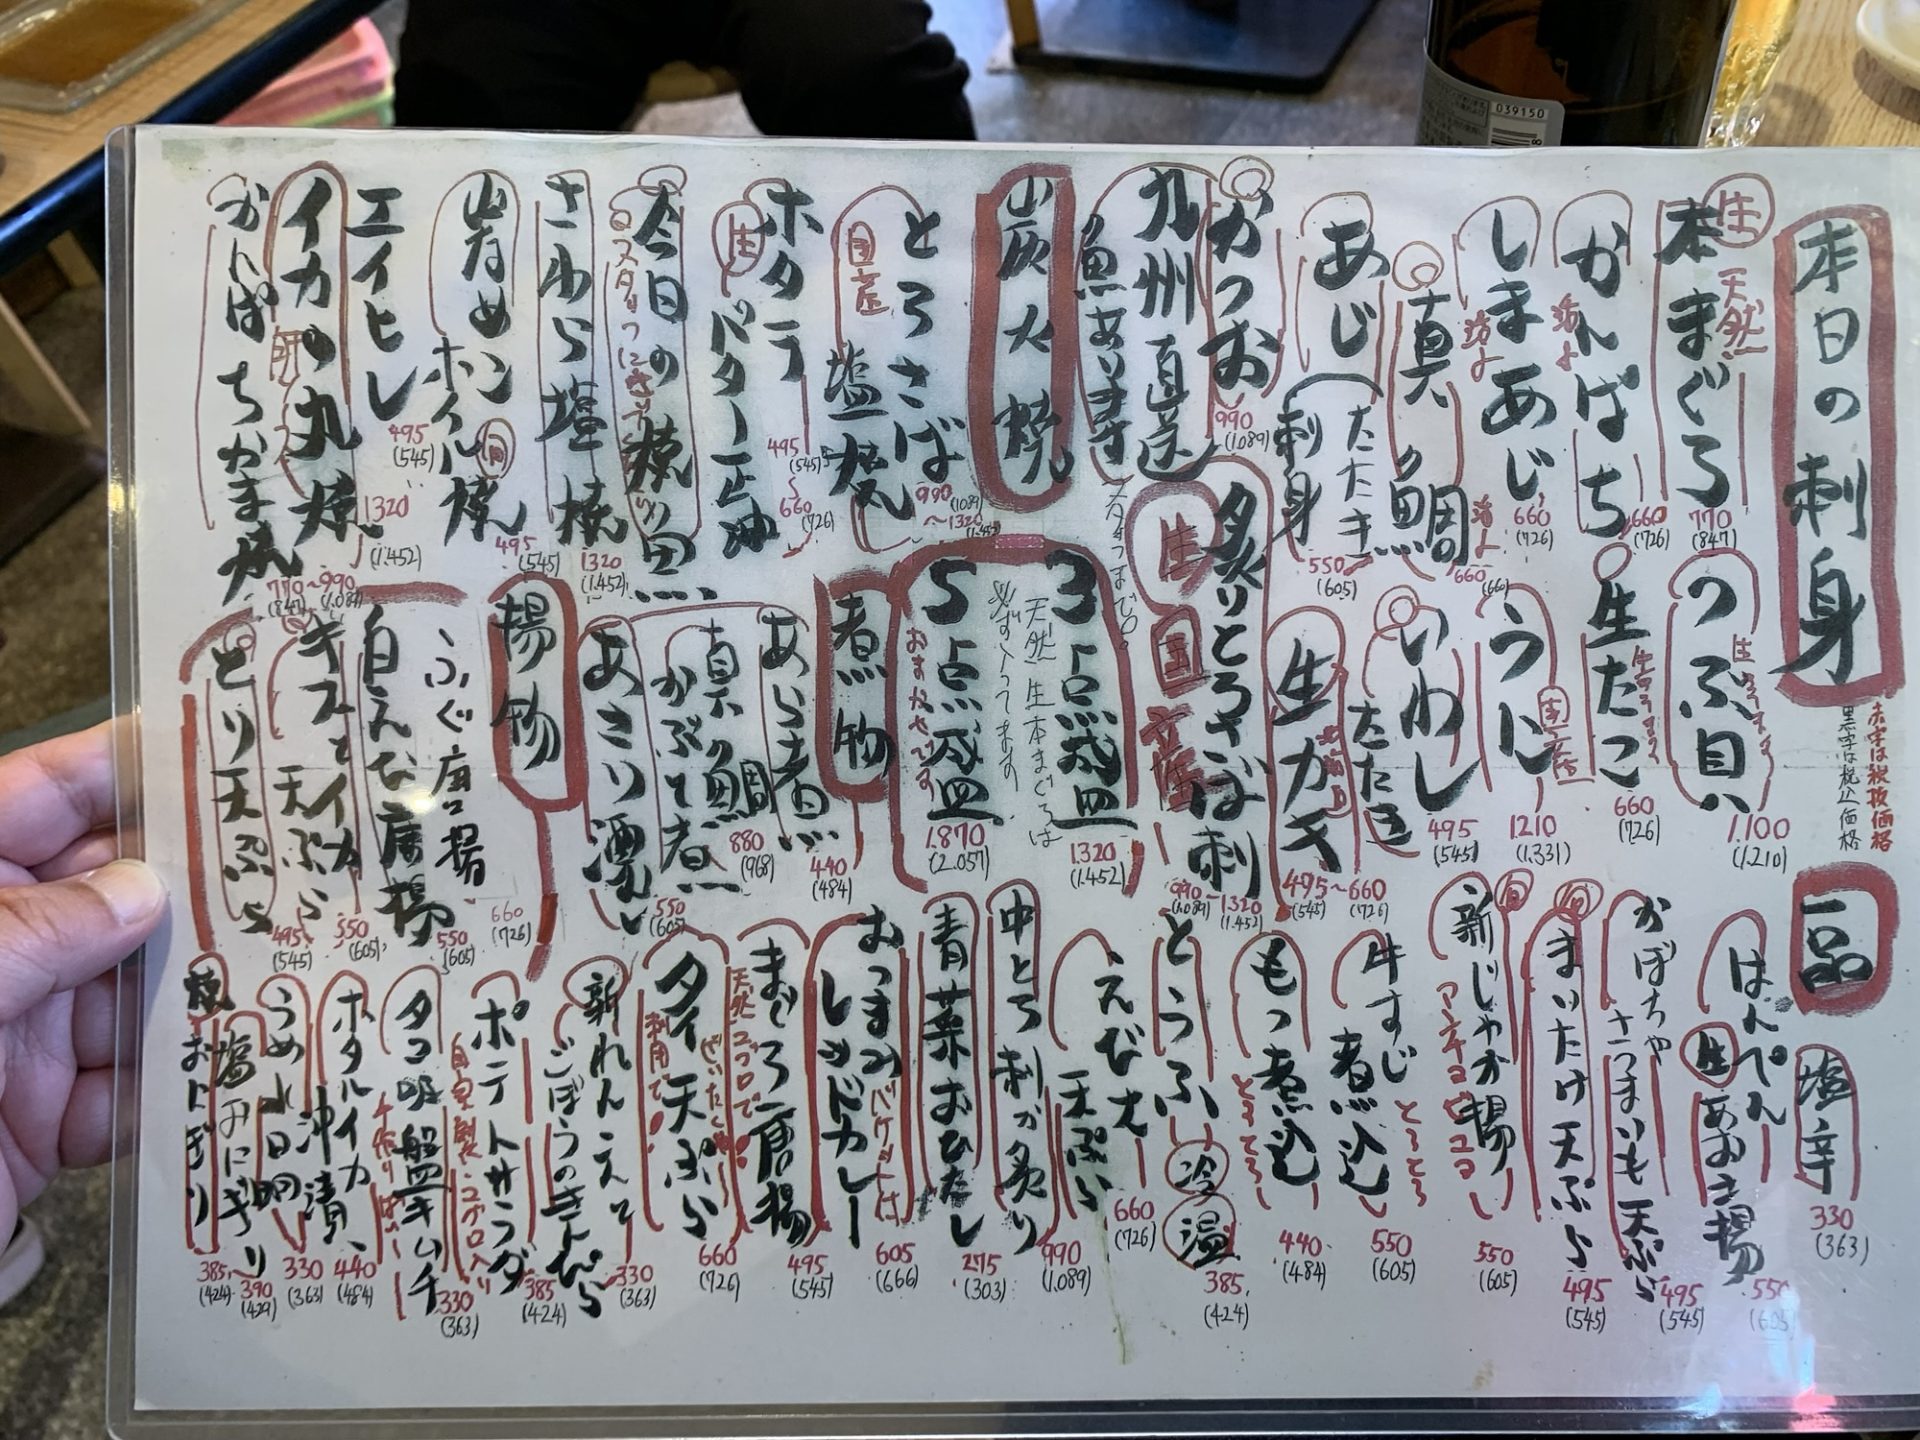 本日の刺身
赤字は税抜価格
黒字は税込価格
生
天然
本まぐろ
770
(847)
かんぱち
660
(726)
しまあじ
660
(726)
真鯛
660
あじ
たたき
刺身
550
(605)
かつお
990
(1.089)
九州直送
魚あります
つぶ貝
1.100
(1.210)
生たこ
660
(726)
うに
国産
1210
(1.331)
いわし
たたき
495
(545)
生カキ
495~660
(545)
(726)
炙りとろさば刺
生
国産
990~1320
(1.089)
(1.452)
3点盛
1.320
(1.452)
天然 生本まぐろは
必ず入ってます
5点盛
おまかせです
1.870
(2.057)
炭火焼
とろさば
塩焼
990
(1.089)
~1320
(1.452)
ホタテ
生
バター正油
495
(545)
~
660
(726)
今日の焼魚
スタッフに
さわら塩焼
1320
(1.452)
ホイル焼
495
(545)
エイヒレ
495
(545)
イカの丸焼
1320
(1.452)
かんぱちかま焼
770~990
(847)
(1.089)
煮物
あら煮
440
(484)
真鯛
かぶと煮
880
(968)
あさり酒蒸し
550
(605)
揚物
ふぐ唐揚
660
(726)
白えび唐揚
550
(605)
キスとイカ
天ぷら
550
(605)
とり天ぷら
495
(545)
一品
塩辛
330
(363)
はんぺん
生
あおさ揚
550
(605)
かぼちゃ
さつまいも天ぷら
495
(545)
まいたけ天ぷら
495
(545)
新じゃが揚
550
(605)
牛すじ
煮込
とろとろ
550
(605)
もつ煮込
とろとろ
440
(484)
とうふ
冷
温
385
(424)
えびす
天ぷら
660
(726)
中とろ刺か炙り
990
(1.089)
青菜おひたし
275
(303)
おつまみ
レッドカレー
バケット付
605
(666)
まぐろ唐揚
495
(545)
タイ天ぷら
刺用で!
660
(726)
新れんこんと
ごぼうのきんぴら
330
(363)
ポテトサラダ
自家製
385
(424)
タコ吸盤キムチ
330
(363)
ホタルイカ
沖漬
440
(484)
うめ水晶
330
(363)
塩おにぎり
390
(429)
焼おにぎり
385
(424)
039150